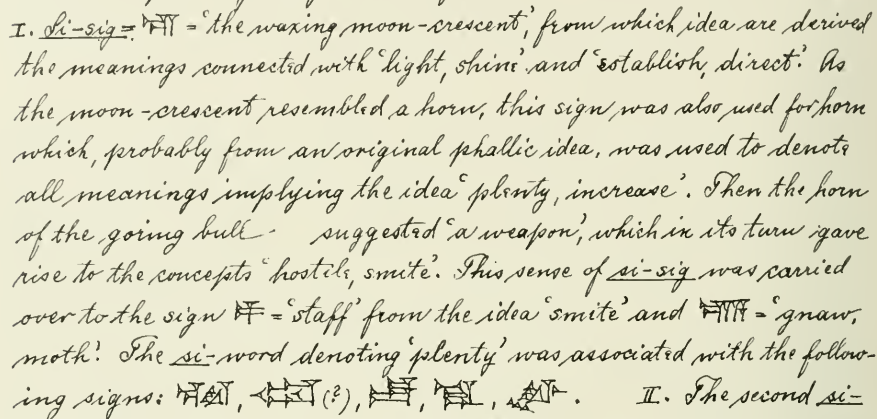 I. Si-sig = 𒋛 = 'the waxing moon-crescent', from which idea are derived
the meanings connected with 'light, shine' and 'establish, direct'. As
the moon-crescent resembled a horn, this sign was also used for horn
which, probably from an original phallic idea, was used to denote
all meanings implying the idea 'plenty, increase'. Then the horn
of the goring bull suggested 'a weapon', which in its turn gave
rise to the concepts 'hostile, smite'. This sense of si-sig was carried
over to the sign = 'staff' from the idea 'smite' and = 'gnaw,
moth'. The si-word denoting 'plenty' was associated with the follow-
ing signs: , (?), , , . II. The second si-